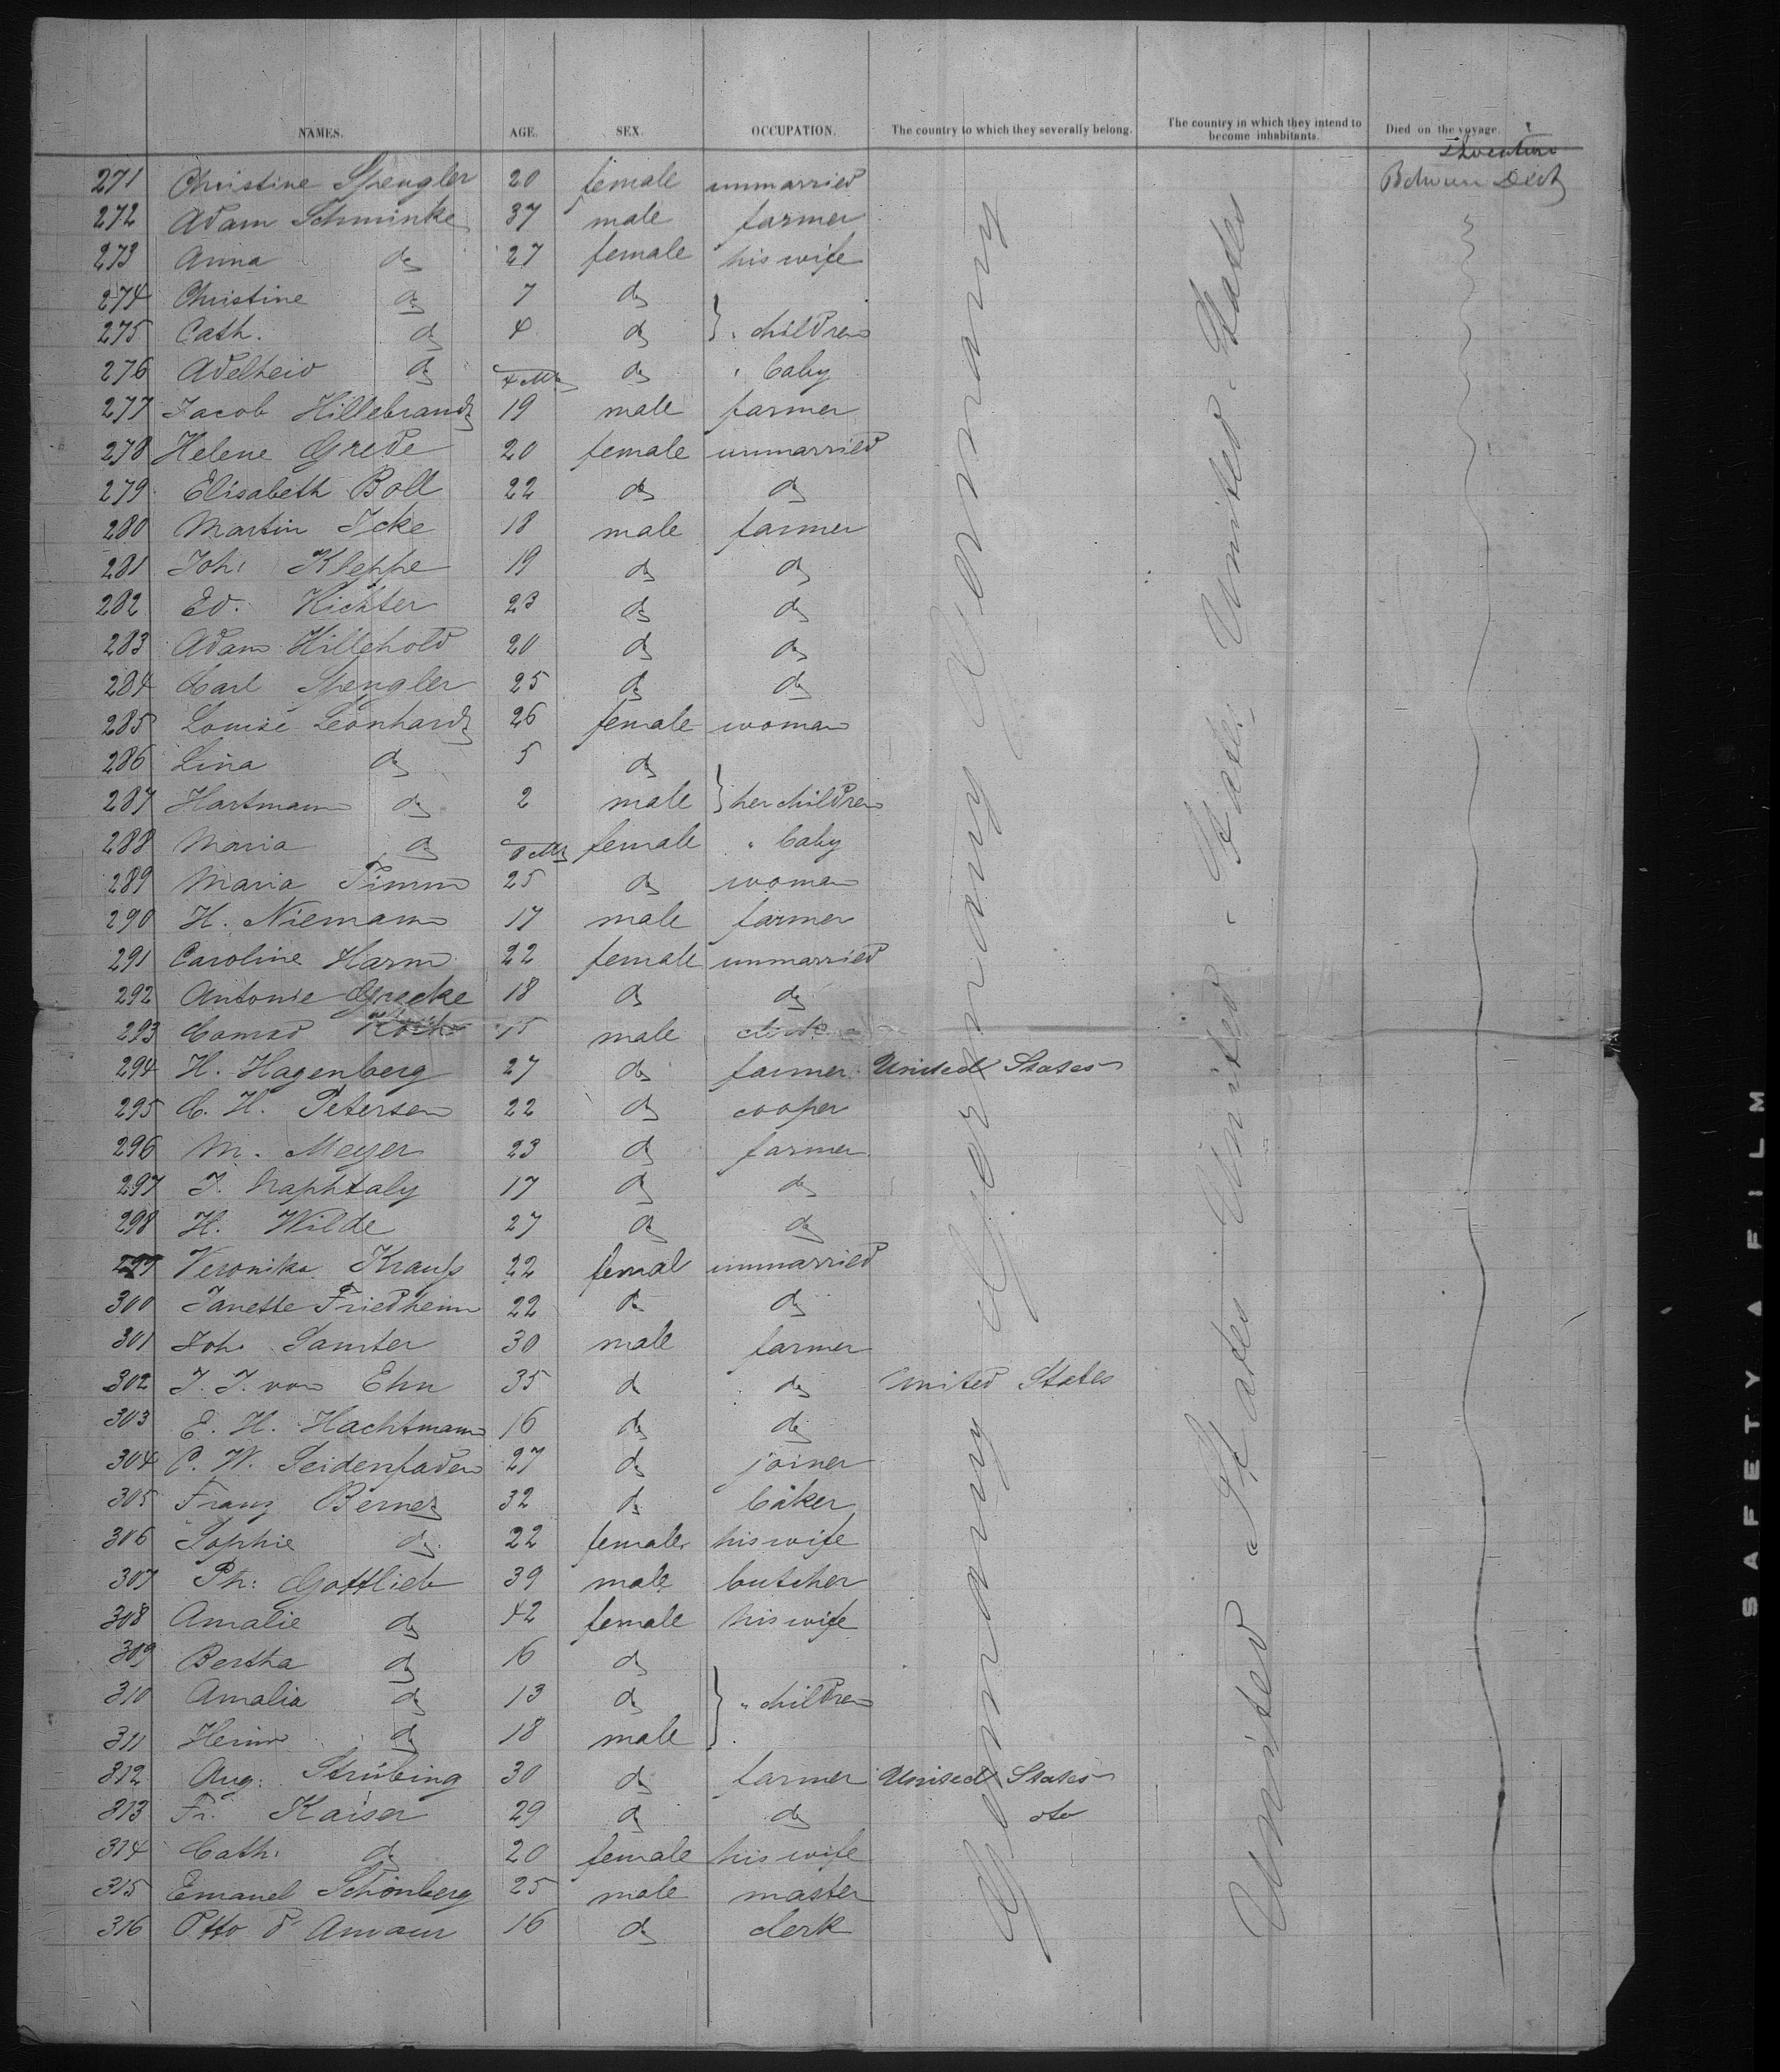 NAMES. AGE. SEX. OCCUPATION. The country to which they severally belong. The country in which they intend to become inhabitants. Died on the voyage.
271 Christine Spengler 20 female unmarried Between Deck
272 Adam Schminke 37 male farmer
273 Anna do 27 female his wife
274 Christine do 7 do
275 Cath. do 4 do } " children
276 Adelheid do 4 Mts do " baby
277 Jacob Hillebrandt 19 male farmer
278 Helene Grede 20 female unmarried
279 Elisabeth Boll 22 do do
280 Martin Icke 18 male farmer
281 Joh. Kleppe 19 do do
282 Ed. Richter 23 do do
283 Adam Hillehold 20 do do
284 Carl Spengler 25 do do
285 Louise Leonhardt 26 female woman
286 Lina do 5 do
287 Hartmann do 2 male } her children
288 Maria do 8 Mts female " baby
289 Maria Timm 25 do woman
290 H. Niemann 17 male farmer
291 Caroline Harm 22 female unmarried
292 Antonie Grecke 18 do do
293 Conrad Koch 15 male
294 H. Hagenberg 27 do farmer United States
295 C. H. Petersen 22 do cooper
296 M. Meyer 23 do farmer
297 J. Naphtaly 17 do do
298 H. Wilde 27 do do
299 Veronika Krauß 22 femal unmarried
300 Janette Friedheim 22 do do
301 Joh. Samter 30 male farmer
302 J. J. von Ehn 35 do do United States
303 E. H. Hachtmann 16 do do
304 C. W. Seidenfaden 27 do joiner
305 Franz Berner 32 do baker
306 Sophie do 22 female his wife
307 Ph: Gottlieb 39 male butcher
308 Amalie do 42 female his wife
309 Bertha do 16 do
310 Amalia do 13 do } " children
311 Heinr. do 18 male
312 Aug: Strübing 30 do farmer United States
313 Fr. Kaiser 29 do do do
314 Cath. do 20 female his wife
315 Emanuel Schönberg 25 male master
316 Otto d'Amour 16 do clerk
Germany Germany Germany
United States " United States " United States
SAFETY A FILM